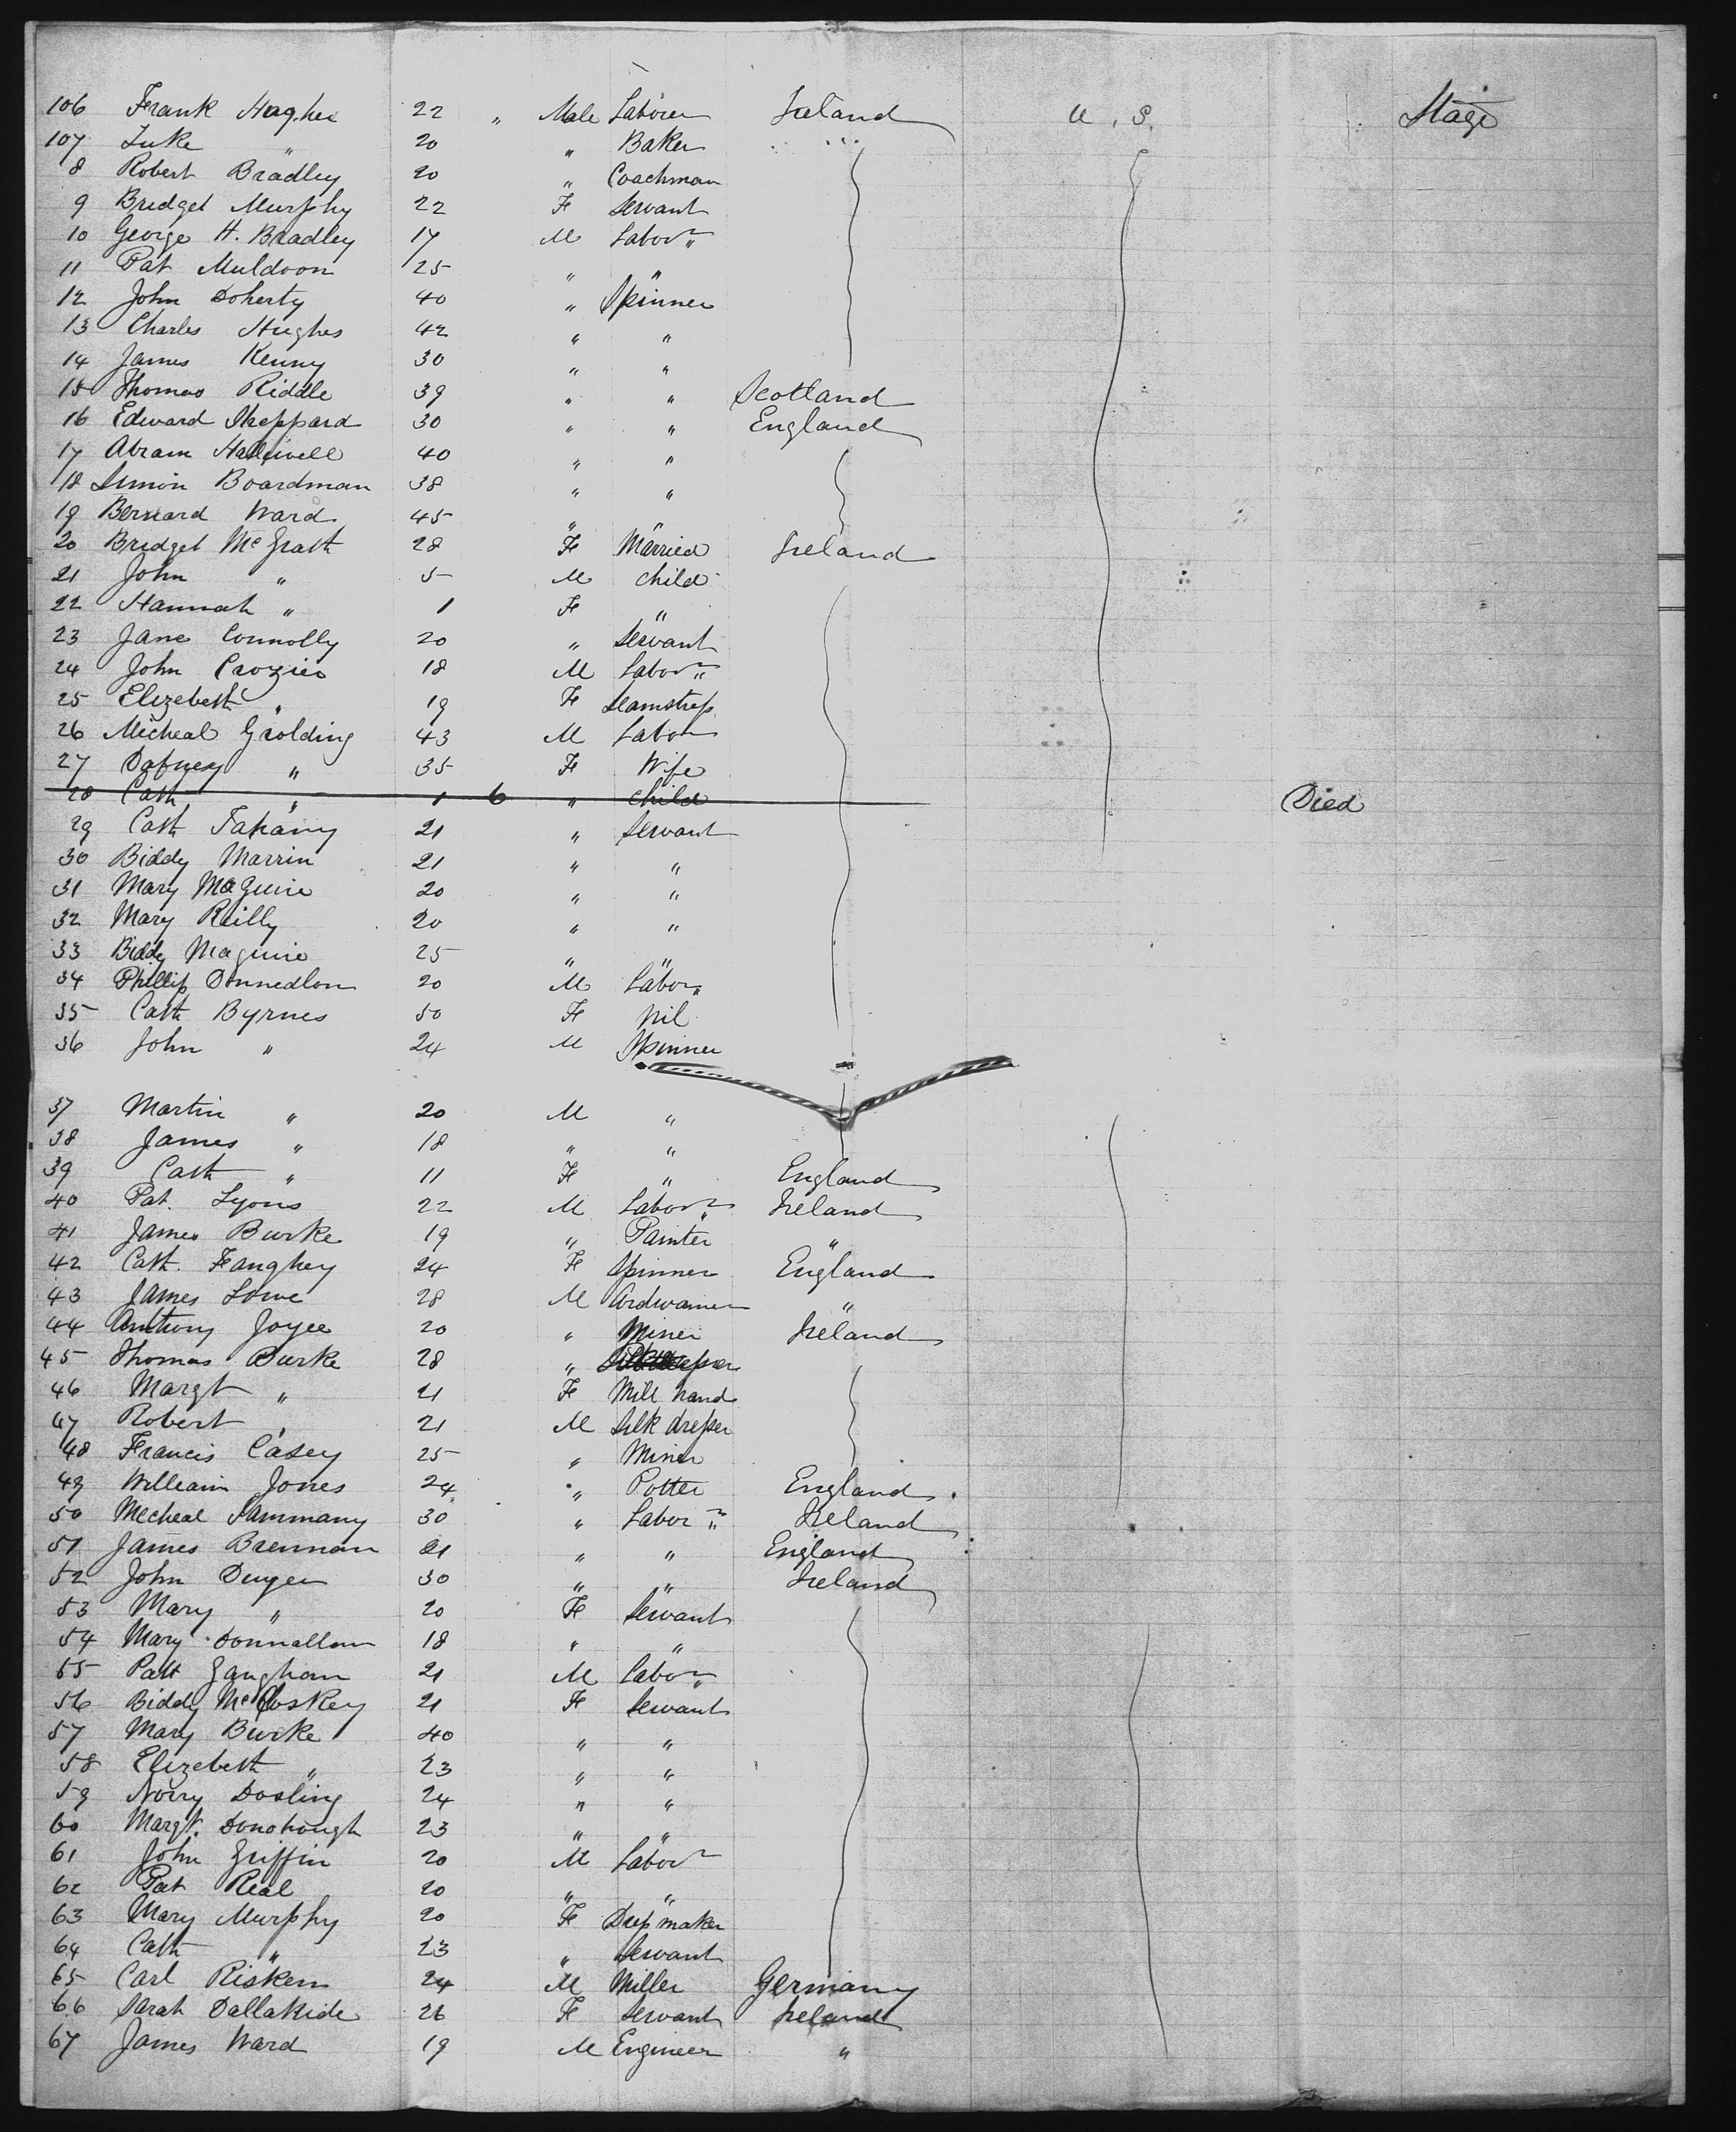 106 Frank Haghes 22 " Male Laborer Ireland U.S. Stage
107 Luke " 20 " Baker "
8 Robert Bradley 20 " Coachman
9 Bridget Murphy 22 F Servant
10 George H. Bradley 17 M Labor"
11 Pat Muldoon 25 " "
12 John Doherty 40 " Spinner
13 Charles Hughes 42 " "
14 James Kenny 30 " "
15 Thomas Riddle 39 " " Scotland
16 Edward Sheppard 30 " " England
17 Abram Halliwell 40 " "
18 Simon Boardman 38 " "
19 Bernard Ward 45 " "
20 Bridget McGrath 28 F Married Ireland
21 John " 5 M child
22 Hannah " 1 F "
23 Jane Connolly 20 " Servant
24 John Crozier 18 M Labor"
25 Elizebeth " 19 F Seamstress
26 Micheal Grolding 43 M Labor
27 Dafney " 35 F Wife
28 Cath " 1 6 " child Died
29 Cath Tahany 21 " Servant
30 Biddy Marrin 21 " "
31 Mary McGuire 20 " "
32 Mary Reilly 20 " "
33 Biddy Maguire 25 " "
34 Phillip Donnedlon 20 M Labor
35 Cath Byrnes 50 F Nil
36 John " 24 M Spinner
37 Martin " 20 M "
38 James " 18 " "
39 Cath " 11 F " England
40 Pat. Lyons 22 M Labor" Ireland
41 James Burke 19 " Painter "
42 Cath. Fanghey 24 F Spinner England
43 James Lowe 28 M Cordwainer "
44 Anthony Joyce 20 " Miner Ireland
45 Thomas Burke 28 "
46 Margt " 21 F Mill hand
47 Robert " 21 M Silk dresser
48 Francis Casey 25 " Miner
49 William Jones 24 " Potter England
50 Micheal Sammany 30 " Labor" Ireland
51 James Brennan 21 " " England
52 John Dwyer 30 " " Ireland
53 Mary " 20 F Servant
54 Mary Donnallan 18 " "
55 Patt Gangham 21 M Labor"
56 Biddy McCloskey 21 F Servant
57 Mary Burke 40 " "
58 Elizebeth " 23 " "
59 Norry Dosling 24 " "
60 Margt. Donohough 23 " "
61 John Griffin 20 M Labor
62 Pat Real 20 " "
63 Mary Murphy 20 F Dress maker
64 Cath " 23 " Servant
65 Carl Risken 24 M Miller Germany
66 Sarah Dallakide 26 F Servant Ireland
67 James Ward 19 M Engineer "